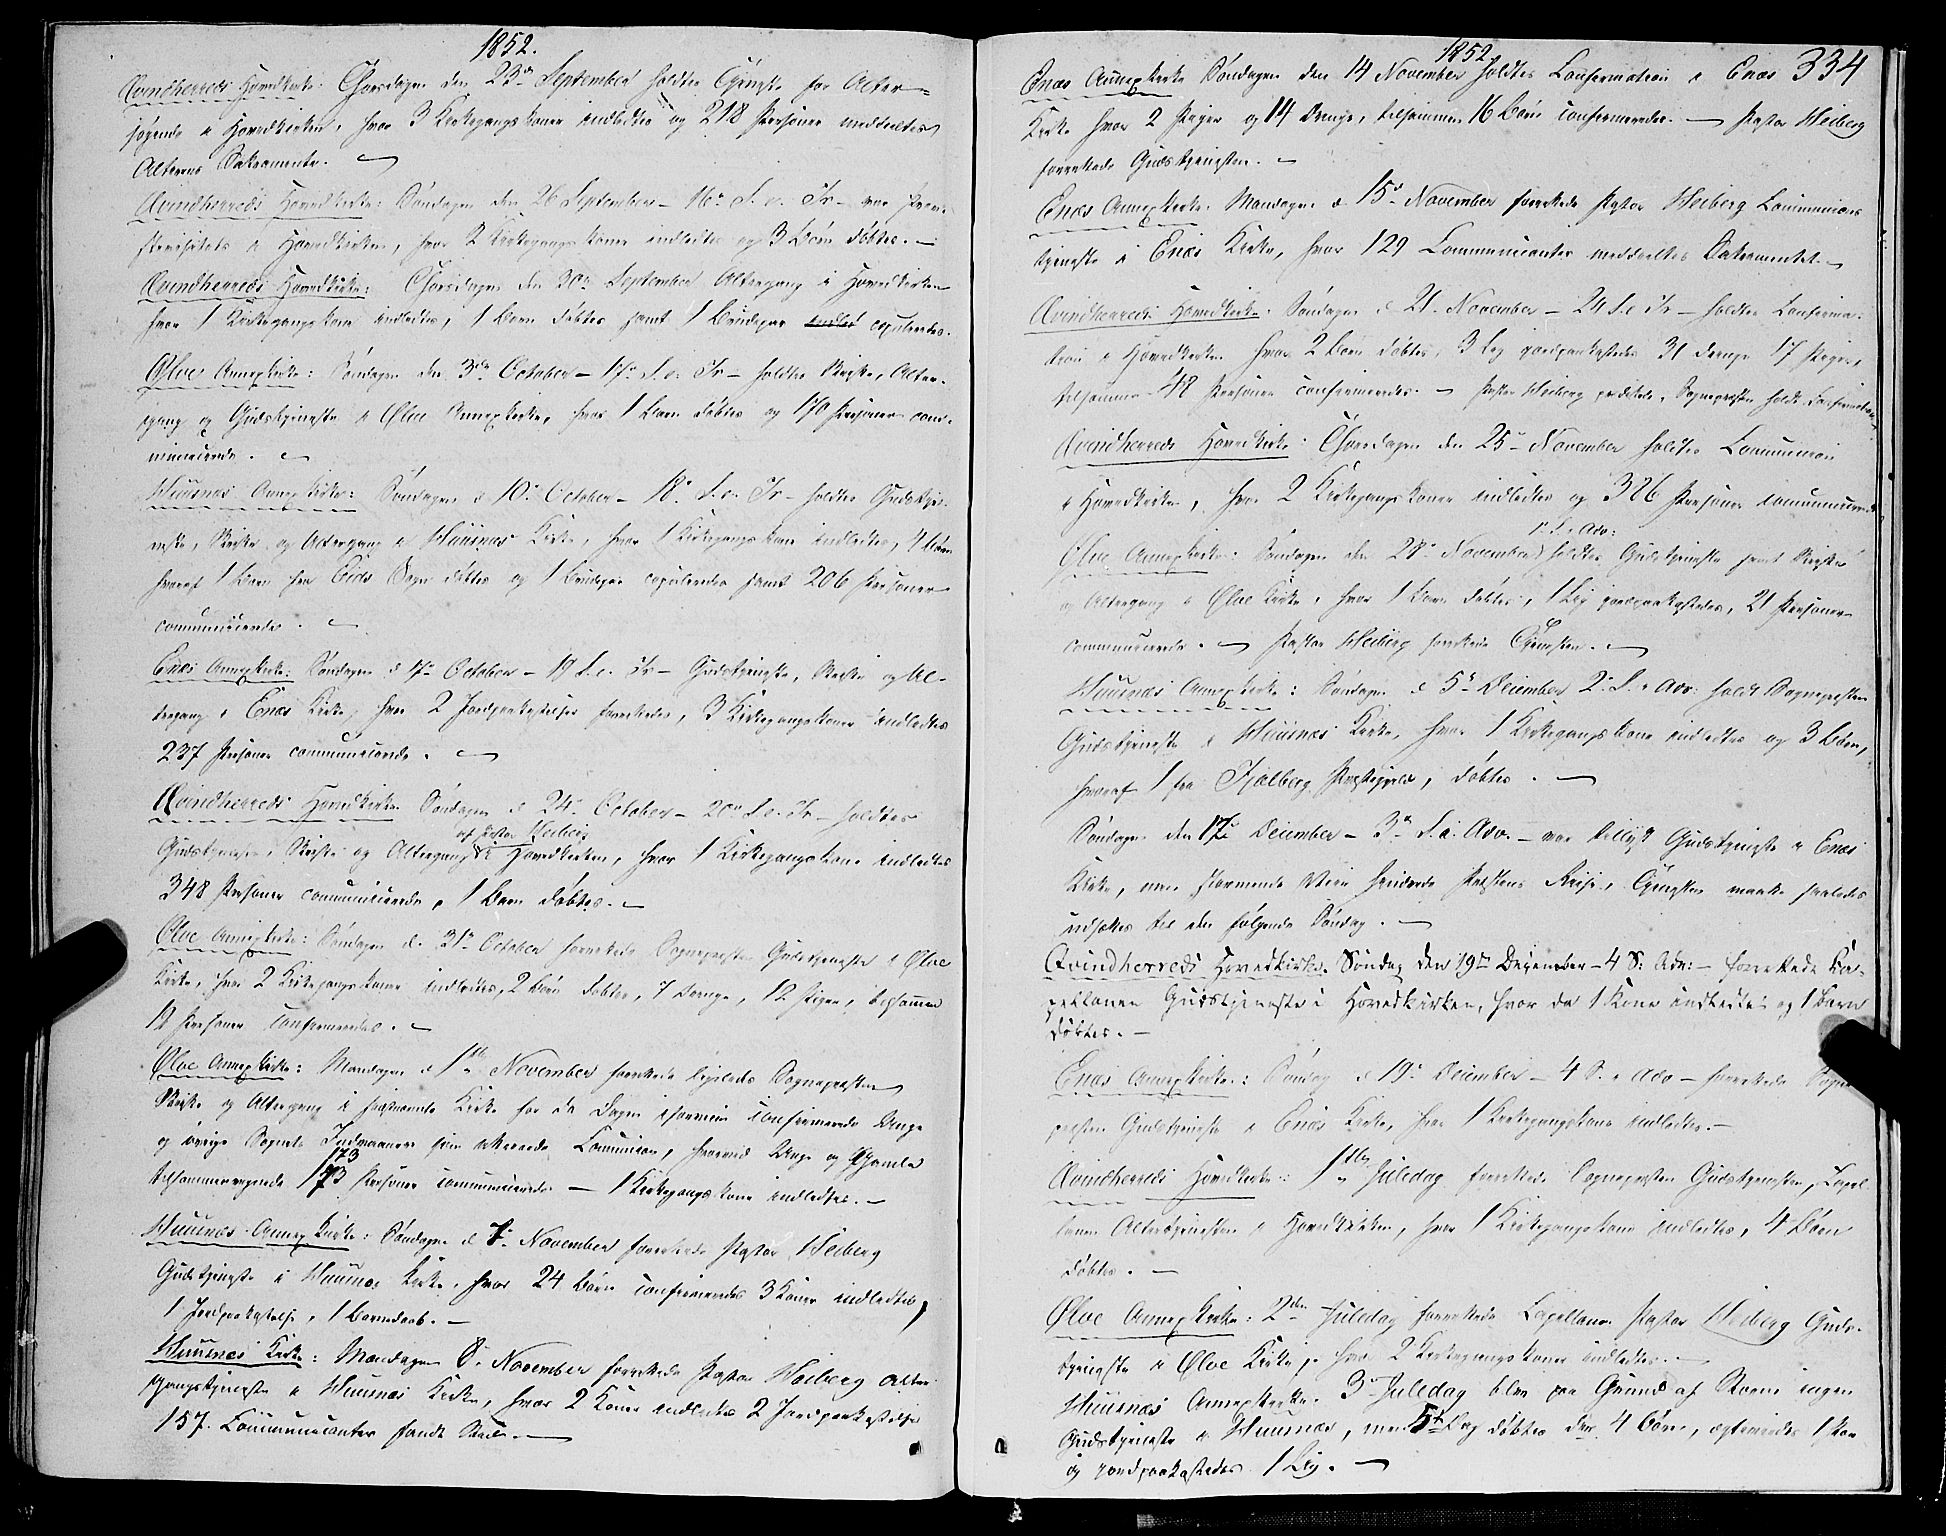 1852.
Qvindherreds Hovedkirke: Thorsdagen den 23de September holdtes Tjeneste for Alter-
søgende i Hovedkirken, hvor 3 Kirkegangskoner indledtes og 218 Personer meddeeltes
Alterens Sakramente.
Qvindherreds Hovedkirke: Søndagen den 26 September - 16de S. e. Tr. - var
i Hovedkirken, hvor 2 Kirkegangskoner indledtes og 3 Børn døbtes. -
Qvindherreds Hovedkirke: Thorsdagen den 30te September Altergang i Hovedkirken
hvor 1 Kirkegangskone indledtes, 1 Barn døbtes samt 1 Brudepar copuleredes.
Ølve Annexkirke: Søndagen den 3de October - 17de S. e. Tr - holdtes Skrifte, Alter-
gang og Gudstjeneste i Ølve Annexkirke, hvor 1 Barn døbtes og 170 Personer com-
municerede.
Huusnæs Annexkirke: Søndagen d 10de October - 18de S. e. Tr - holdtes Gudstje-
neste, Skrifte og Altergang i Huusnæs Kirke, hvor 1 Kirkegangskone indledtes, 4 Børn
hvoraf 1 Barn fra Eids Sogn døbtes og 1 Brudepar copuleredes samt 206 Personer
communicerede.
Enæs Annexkirke: Søndagen d 17de October - 19 S. e. Tr - Gudstjeneste, Skrifte og Al-
tergang i Enæs Kirke, hvor 2 Jordpaakastelser forrettedes, 3 Kirkegangskoner indledtes
237 Personer communicerede.
Qvindherreds Hovedkirke: Søndagen d 24de October - 20de S. e. Tr - holdtes
af Pastor Heiberg
Gudstjeneste, Skrifte og Altergang i Hovedkirken, hvor 1 Kirkegangskone indledtes
348 Personer communicerede, 1 Barn døbtes. -
Ølve Annexkirke: Søndagen d. 31te October forrettede Sognepræsten Gudstjeneste i Ølve
Kirke, hvor 2 Kirkegangskoner indledtes, 2 Børn døbtes, 7 Drenge, 12 Piger, tilsammen
19 Personer confirmeredes. -
Ølve Annexkirke: Mandagen d 1ste November forrettede ligeledes Sognepræsten
Skrifte og Altergang i samme Kirke for de Dagen iforveien confirmerede Unge
og øvrige Sognets Indvaanere som Communion, hvorved Unge og Gamle
173
tilsammenregnede 173 Personer communicerede - 1 Kirkegangskone indledtes. -
Huusnæs Annexkirke: Søndagen d 7de November forrettede Pastor Heiberg
Gudstjeneste i Huusnæs Kirke, hvor 24 Børn confirmeredes 3 Koner indledtes,
1 Jordpaakastelse, 1 Barnedaab. -
Huusnæs Kirke: Mandagen 8de November forrettede Pastor Heiberg Alter-
gangstjeneste i Huusnæs Kirke, hvor 2 Koner indledtes 2 Jordpaakastelser
157. Communicanter fandt Sted. -
1852
334
Enæs Annexkirke Søndagen den 14 November holdtes Confirmation i Enæs
Kirke hvor 2 Piger og 14 Drenge, tilsammen 16 Børn confirmeredes. - Pastor Heiberg
forrettede Gudstjenesten. -
Enæs Annexkirke. Mandagen d 15de November forrettede Pastor Heiberg Communions
tjeneste i Enæs Kirke, hvor 129 Communicanter meddeeltes Sakramentet. -
Qvindherreds Hovedkirke: Søndagen d 21. November - 24 S. e. Tr - holdtes Confirma-
tion i Hovedkirken hvor 2 Børn døbtes, 3 Lig jordpaakastedes 31 Drenge 17 Piger,
tilsammen 48 Personer confirmeredes. - Pastor Heiberg prædikede, Sognepræsten holdt Confirmation
Qvindherreds Hovedkirke: Thorsdagen den 25de November holdtes Communion
i Hovedkirken, hvor 2 Kirkegangskoner indledtes og 386 Personer communicerede
1 S. i Adv:
Ølve Annexkirke: Søndagen den 28de November holdtes Gudstjeneste samt Skrifte
og Altergang i Ølve Kirke, hvor 1 Barn døbtes, 1 Lig jordpaakastedes, 21 Personer
communicerede. - Pastor Heiberg forrettede Tjenesten. -
Huusnæs Annexkirke: Søndagen d 5te December 2de S. i Adv: holdt Sognepræsten
Gudstjeneste i Huusnæs Kirke, hvor 1 Kirkegangskone indledtes og 3 Børn,
hvoraf 1 fra Fjælberg Præstegjeld, døbtes. -
Søndagen den 12te December - 3de S. i Adv. - var tillyst Gudstjeneste i Enæs
Kirke, men stormende Veir hindrede Præstens Reise, Tjenesten maatte saaledes
udsættes til den følgende Søndag. -
Qvindherreds Hovedkirke. Søndag den 19de December - 4 S: Adv: - forrettede Ca-
pellanen Gudstjeneste i Hovedkirken, hvor da 1 Kone indledtes og 1 Barn
døbtes. -
Enæs Annexkirke: Søndag d 19de December - 4 S. i Adv - forrettede Sogne-
præsten Gudstjeneste i Enæs Kirke, hvor 1 Kirkegangskone indledtes. -
Qvindherreds Hovedkirke: 1ste Juledag forrettede Sognepræsten Gudstjenesten, Capel-
lanen Altertjenesten i Hovedkirken, hvor 1 Kirkegangskone indledtes, 4 Børn
døbtes. -
Ølve Annexkirke: 2den Juledag forrettede Capellanen Pastor Heiberg Guds-
tjeneste i Ølve Kirke, hvor 2 Kirkegangskoner indledtes. -
Huusnæs Annexkirke. 3de Juledag blev paa Grund af Storm ingen
Gudstjeneste i Huusnæs, men 5te Dag døbtes der 4 Børn, ægteviedes 1 Par
og jordpaakastedes 1 Lig. -